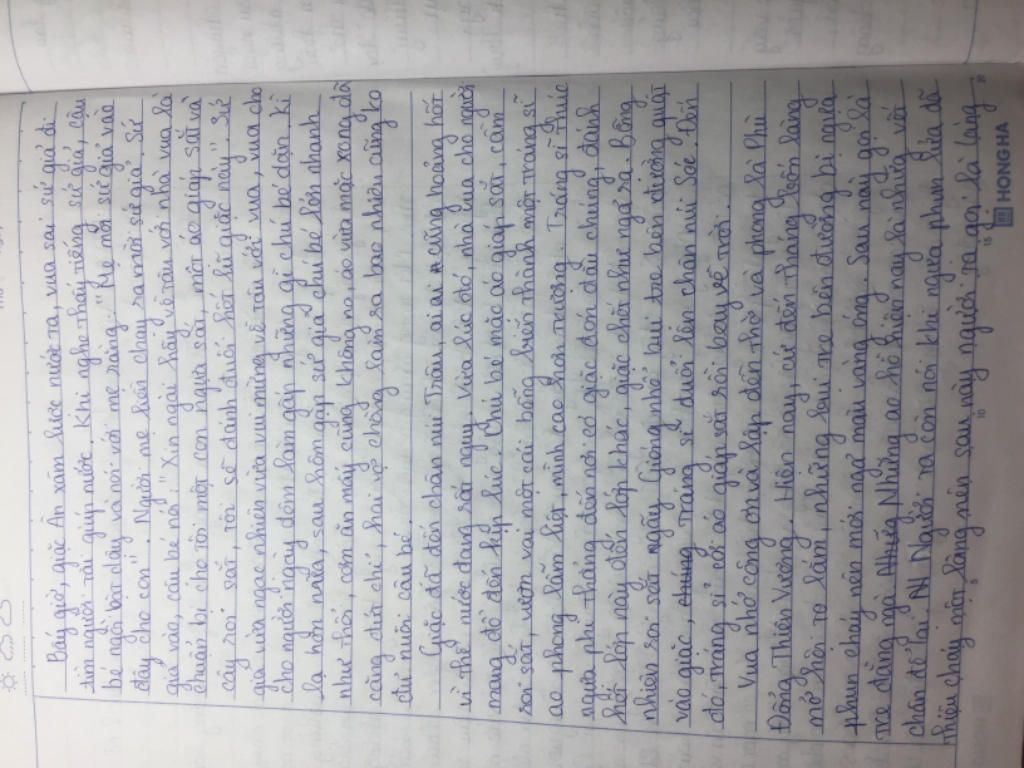 Bấy giờ, giặc Ân xâm lược nước ta, vua sai sứ giả đi
tìm người tài giúp nước. Khi nghe thấy tiếng sứ giả, cậu
bé ngồi bật dậy và nói với mẹ rằng: "Mẹ mời sứ giả vào
đây cho con". Người mẹ liền chạy ra mời sứ giả. Sứ
giả vào, cậu bé nói: "Xin ngài hãy về tâu với nhà vua là
chuẩn bị cho tôi một con ngựa sắt, một áo giáp sắt và
cây roi sắt, tôi sẽ đánh đuổi hết lũ giặc này". Sứ
giả vừa ngạc nhiên vừa vui mừng về tâu với vua, vua cho
cho người ngày đêm làm gấp những gì chú bé dặn. Kì
lạ hơn nữa, sau hôm gặp sứ giả chú bé lớn nhanh
như thổi, cơm ăn mấy cũng không no, áo vừa mặc xong đã
căng đứt chỉ, hai vợ chồng làm ra bao nhiêu cũng ko
đủ nuôi cậu bé.
Giặc đã đến chân núi Trâu, ai ai cũng hoảng hốt
vì thế nước đang rất nguy. Vừa lúc đó, nhà vua cho người
mang đồ đến kịp lúc. Chú bé mặc áo giáp sắt, cầm
roi sắt, vươn vai một cái bỗng biến thành một tráng sĩ
oai phong lẫm liệt, mình cao hơn trượng. Tráng sĩ thúc
ngựa phi thẳng đến nơi có giặc đón đầu chúng, đánh
hết lớp này đến lớp khác, giặc chết như ngả rạ. Bỗng
nhiên roi sắt gãy Gióng nhổ bụi tre bên đường quật
vào giặc, Tráng sĩ đuổi đến chân núi Sóc. Đến
đó, tráng sĩ cởi áo giáp sắt rồi bay về trời.
Vua nhớ công ơn và lập đền thờ và phong là Phù
Đổng Thiên Vương. Hiện nay, cứ đến tháng tư làng
mở hội to lắm, những bụi tre bên đường bị ngựa
phun cháy nên mới ngả màu vàng óng. Sau này gọi là
tre đằng ngà Những ao hồ hiện nay là những vết
chân để lại. Người ta còn nói khi ngựa phun lửa đã
thiệu cháy một làng nên sau này người ta gọi là làng
HONG HA
5
10
15
20